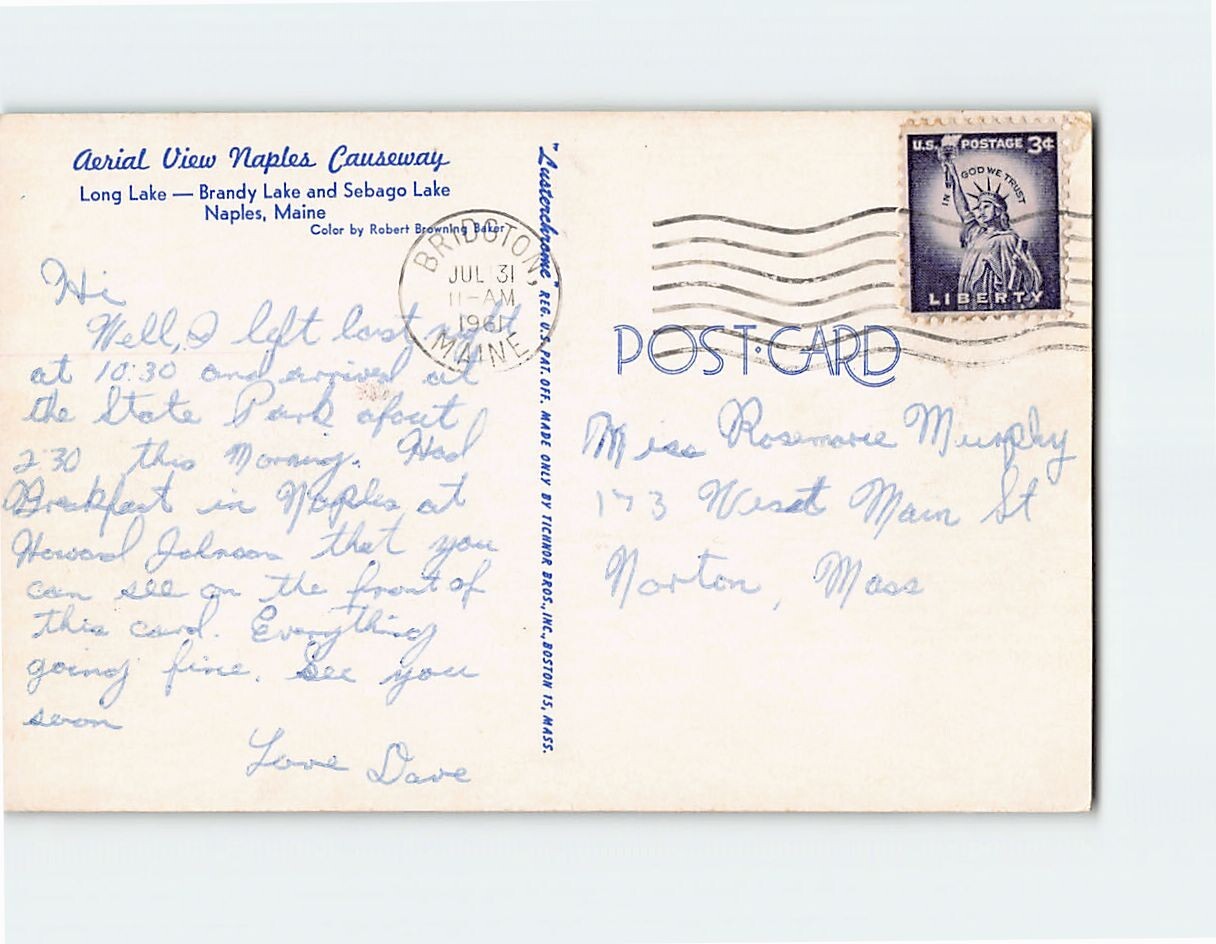 Aerial View Naples Causeway
Long Lake — Brandy Lake and Sebago Lake
Naples, Maine
Color by Robert Browning Baker
Hi
Well, I left last night
at 10:30 and arrived at
the State Park about
2:30 this Morning. Had
Breakfast in Naples at
Howard Johnsons that you
can see on the front of
this card. Everything
going fine. See you
soon
Love Dave
BRIDGTON,
JUL 31
11-AM
1961
MAINE
"Lusterchrome" REG. U.S. PAT. OFF. MADE ONLY BY TICHNOR BROS., INC., BOSTON 15, MASS.
U.S. POSTAGE 3¢
IN GOD WE TRUST
LIBERTY
POST·CARD
Miss Rosemarie Murphy
173 West Main St
Norton, Mass